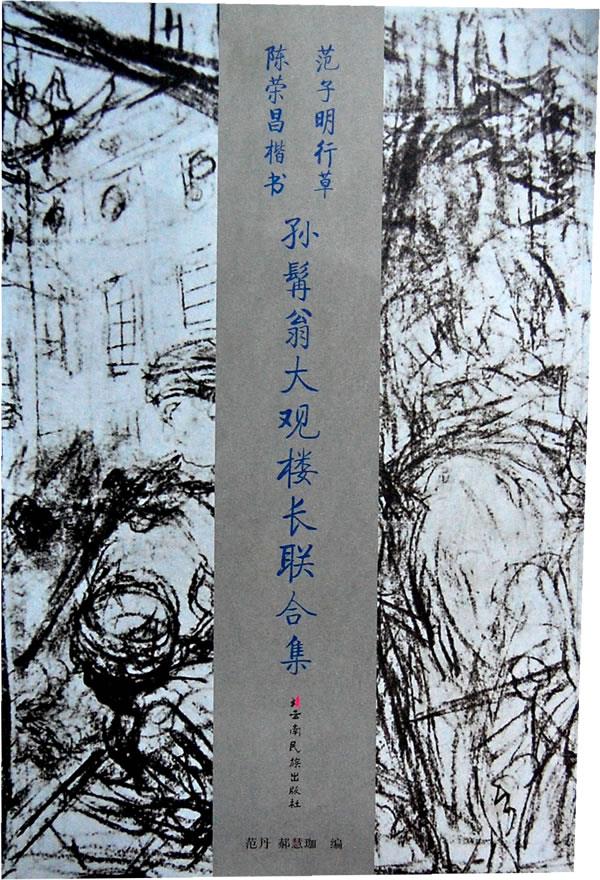 范子明行草
陈荣昌楷书
孙髯翁大观楼长联合集
云南民族出版社
范丹 郝慧珈 编